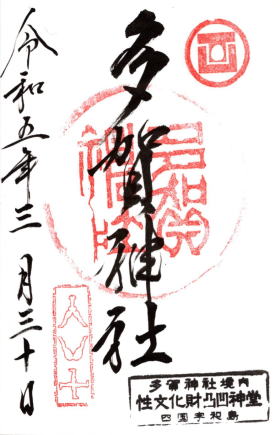 多賀神社
令和五年三月三十日
多賀神社境内
性文化財凸凹神堂
四国宇和島